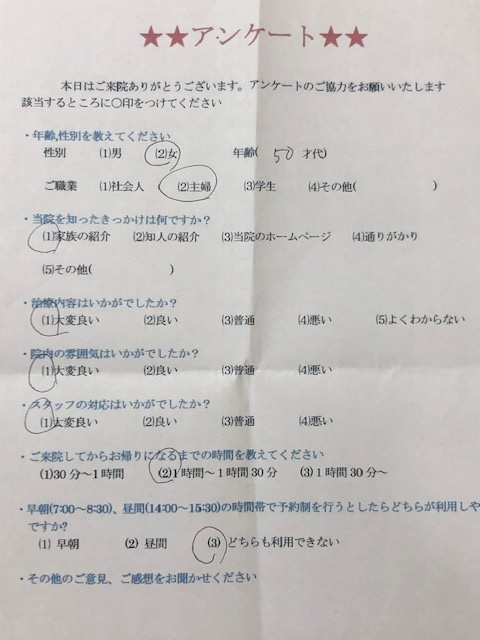 ★★アンケート★★
本日はご来院ありがとうございます。アンケートのご協力をお願いいたします
該当するところに〇印をつけてください
・年齢,性別を教えてください
性別 (1)男 (2)女 年齢( 50 才代)
ご職業 (1)社会人 (2)主婦 (3)学生 (4)その他( )
・当院を知ったきっかけは何ですか？
(1)家族の紹介 (2)知人の紹介 (3)当院のホームページ (4)通りがかり
(5)その他( )
・治療内容はいかがでしたか？
(1)大変良い (2)良い (3)普通 (4)悪い (5)よくわからない
・院内の雰囲気はいかがでしたか？
(1)大変良い (2)良い (3)普通 (4)悪い
・スタッフの対応はいかがでしたか？
(1)大変良い (2)良い (3)普通 (4)悪い
・ご来院してからお帰りになるまでの時間を教えてください
(1)30分～1時間 (2)1時間～1時間30分 (3)1時間30分～
・早朝(7:00～8:30)、昼間(14:00～15:30)の時間帯で予約制を行うとしたらどちらが利用しや
ですか?
(1) 早朝 (2) 昼間 (3) どちらも利用できない
・その他のご意見、ご感想をお聞かせください